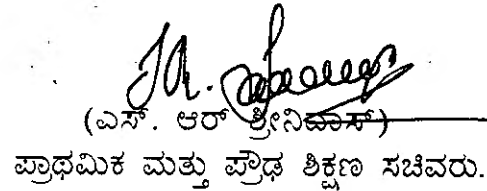 (ಎಸ್. ಆರ್ ಶ್ರೀನಿವಾಸ್)
ಪ್ರಾಥಮಿಕ ಮತ್ತು ಪ್ರೌಢ ಶಿಕ್ಷಣ ಸಚಿವರು.